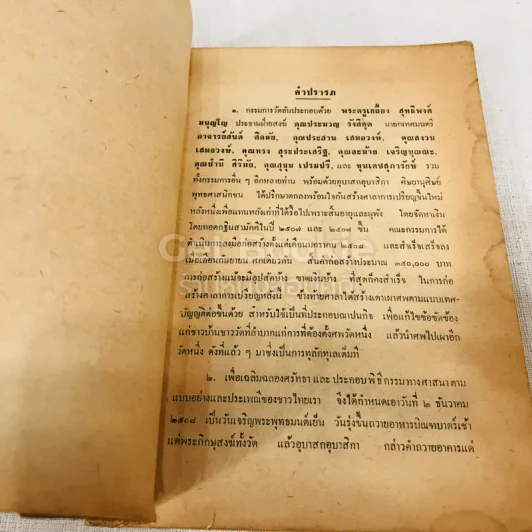 คำปรารภ
๑. กรรมการวัดอันประกอบด้วย พระครูเกลี้ยง สุทธิพงส์
มนุญโญ ประธานฝ่ายสงฆ์ คุณประมวญ รังสิคุต นายกเทศมนตรี
อาจารย์สันต์ ศิลมัย, คุณประสาน เสมอวงษ์, คุณสงวน
เสมอวงษ์, คุณทรง สุระประเสริฐ, คุณละม้าย เจริญบุณณะ,
คุณชำนิ ศิริมัย, คุณสุขุม เปรมปรี, และ ขุนเดชสุภารักษ์ รวม
ทั้งกรรมการอื่น ๆ อีกหลายท่าน พร้อมด้วยอุบาสกอุบาสิกา ศิษยานุศิษย์
พุทธศาสนิกชน ได้ปรึกษาตกลงพร้อมใจกันสร้างศาลาการเปรียญขึ้นใหม่
หลังหนึ่งเพื่อแทนหลังเก่าที่ได้รื้อไปเพราะสิ้นอายุและผุพัง โดยจัดหาเงิน
โดยทอดกฐินสามัคคีในปี ๒๕๐๗ และ ๒๕๐๘ ขึ้น คณะกรรมการได้
ดำเนินการลงมือก่อสร้างตั้งแต่เดือนมกราคม ๒๕๐๘ และสำเร็จเสร็จลง
เมื่อเดือนกันยายน ศกเดียวกัน สิ้นค่าก่อสร้างประมาณ ๓๕๐,๐๐๐ บาท
การก่อสร้างแม้จะมีอุปสัคบ้าง ขาดเงินบ้าง ที่สุดก็คงสำเร็จ ในการก่อ
สร้างศาลาการเปรียญหลังนี้ ข้างท้ายศาลาได้สร้างเตาเผาศพตามแบบเทศ-
บัญญัติต่อขึ้นด้วย สำหรับใช้เป็นที่ประกอบฌาปนกิจ เพื่อแก้ไขข้อขัดข้อง
แก่ชาวบ้านชาววัดที่ลำบากแก่การที่ต้องตั้งศพวัดหนึ่ง แล้วนำศพไปเผาอีก
วัดหนึ่ง ดังที่แล้ว ๆ มาซึ่งเป็นการทุลักทุเลเต็มที
๒. เพื่อเฉลิมฉลองศรัทธา และประกอบพิธีกรรมทางศาสนาตาม
แบบอย่างและประเพณีของชาวไทยเรา จึงได้กำหนดเอาวันที่ ๒ ธันวาคม
๒๕๐๘ เป็นวันเจริญพระพุทธมนต์เย็น วันรุ่งขึ้นถวายอาหารบิณฑบาตร์เช้า
แด่พระภิกษุสงฆ์ทั้งวัด แล้วอุบาสกอุบาสิกา กล่าวคำถวายอาคารแด่